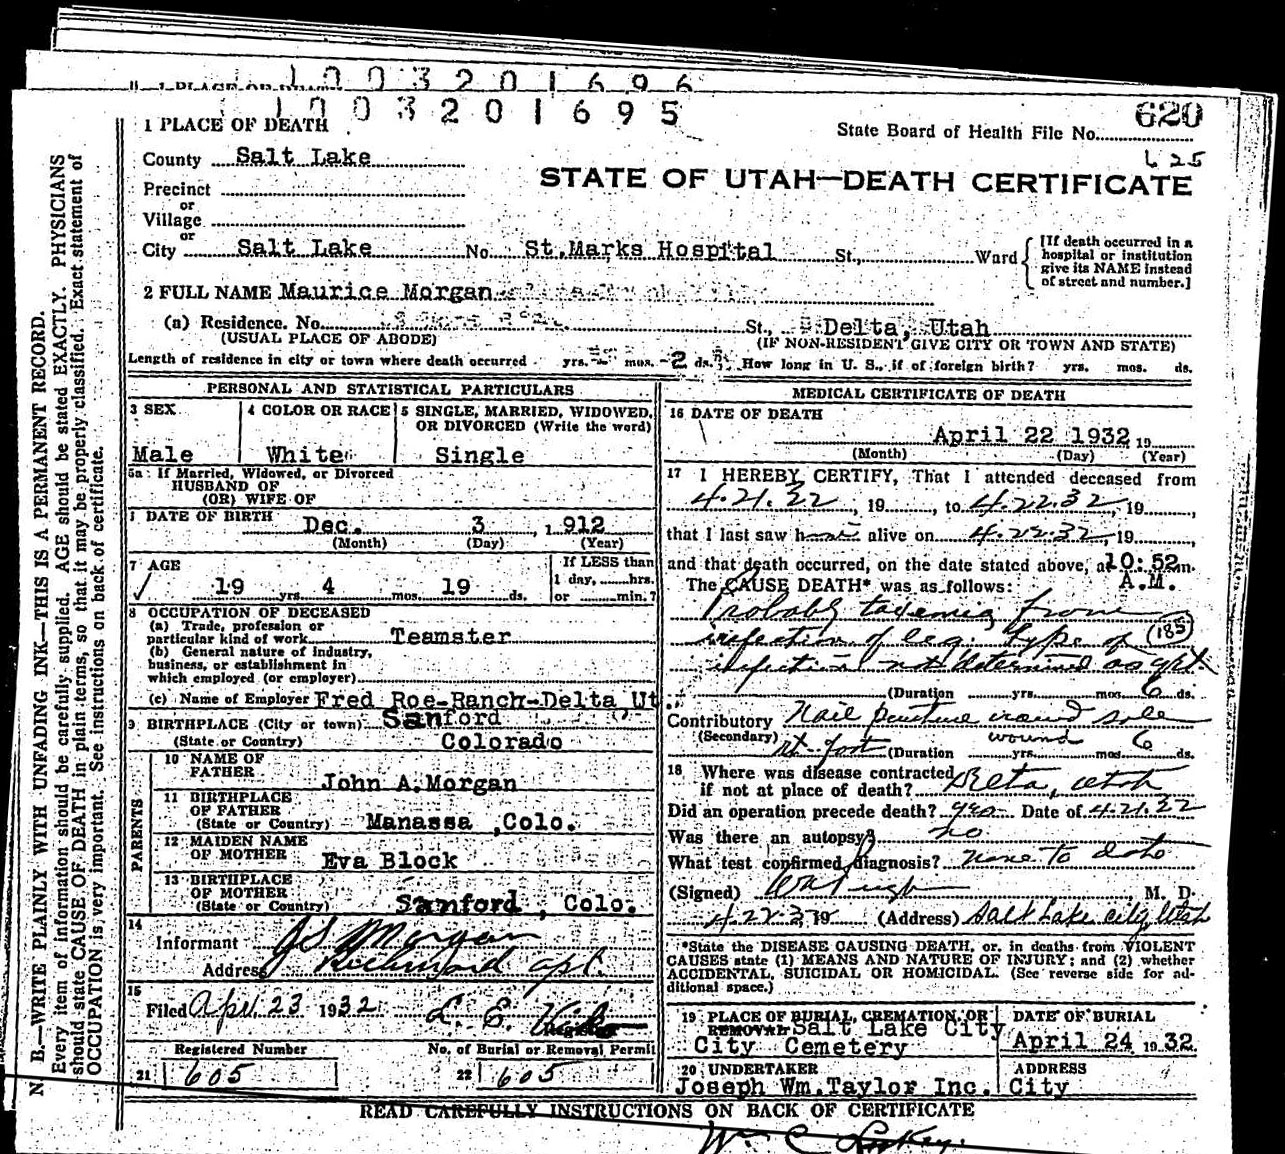 1003201696
1003201695
620
1 PLACE OF DEATH
State Board of Health File No.
625
County Salt Lake
STATE OF UTAH—DEATH CERTIFICATE
Precinct
or
Village
or
City Salt Lake No. St.Marks Hospital St., Ward
[If death occurred in a hospital or institution give its NAME instead of street and number.]
2 FULL NAME Maurice Morgan
(a) Residence. No. St., Delta, Utah
(USUAL PLACE OF ABODE) (IF NON-RESIDENT GIVE CITY OR TOWN AND STATE)
Length of residence in city or town where death occurred yrs. mos. 2 ds. How long in U. S., if of foreign birth? yrs. mos. ds.
PERSONAL AND STATISTICAL PARTICULARS
3 SEX 4 COLOR OR RACE 5 SINGLE, MARRIED, WIDOWED, OR DIVORCED (Write the word)
Male White Single
5a If Married, Widowed, or Divorced
HUSBAND OF
(OR) WIFE OF
DATE OF BIRTH Dec. 3 , 1912
(Month) (Day) (Year)
7 AGE
If LESS than
1 day, hrs.
or min.?
19 yrs. 4 mos. 19 ds.
8 OCCUPATION OF DECEASED
(a) Trade, profession or
particular kind of work Teamster
(b) General nature of industry,
business, or establishment in
which employed (or employer)
(c) Name of Employer Fred Roe-Ranch-Delta Ut
9 BIRTHPLACE (City or town) Sanford
(State or Country) Colorado
PARENTS
10 NAME OF
FATHER John A.Morgan
11 BIRTHPLACE
OF FATHER
(State or Country) Manassa ,Colo.
12 MAIDEN NAME
OF MOTHER Eva Block
13 BIRTHPLACE
OF MOTHER
(State or Country) Sanford , Colo.
14
Informant J S Morgan
Address Richmond apt.
15
Filed Apr. 23 1932 L. E.
Registrar
Registered Number No. of Burial or Removal Permit
21 605 22 605
MEDICAL CERTIFICATE OF DEATH
16 DATE OF DEATH
April 22 1932 19
(Month) (Day) (Year)
17 I HEREBY CERTIFY, That I attended deceased from
4.21.22, 19, to 4.22.32, 19
that I last saw h alive on 4.22.32, 19
and that death occurred, on the date stated above, at 10:52 m.
A.M.
The CAUSE DEATH* was as follows:
Probably toxemia from
infection of leg. Type of (185)
infection not determined as yet
(Duration yrs. mos. 6 ds.
Contributory Nail puncture wound sole
(Secondary) rt. foot (Duration wound yrs. mos. 6 ds.
18 Where was disease contracted
if not at place of death? Delta, Utah
Did an operation precede death? yes Date of 4.21.22
Was there an autopsy? no
What test confirmed diagnosis? none to date
(Signed) M. D.
4.22.32 19 (Address) Salt Lake City, Utah
*State the DISEASE CAUSING DEATH, or, in deaths from VIOLENT
CAUSES state (1) MEANS AND NATURE OF INJURY; and (2) whether
ACCIDENTAL, SUICIDAL OR HOMICIDAL. (See reverse side for ad-
ditional space.)
19 PLACE OF BURIAL, CREMATION, OR REMOVAL Salt Lake City
City Cemetery
DATE OF BURIAL
April 24 1932
20 UNDERTAKER ADDRESS
Joseph Wm.Taylor Inc. City
READ CAREFULLY INSTRUCTIONS ON BACK OF CERTIFICATE
Wm C
N. B.—WRITE PLAINLY WITH UNFADING INK—THIS IS A PERMANENT RECORD.
Every item of information should be carefully supplied. AGE should be stated EXACTLY. PHYSICIANS
should state CAUSE OF DEATH in plain terms, so that it may be properly classified. Exact statement of
OCCUPATION is very important. See instructions on back of certificate.